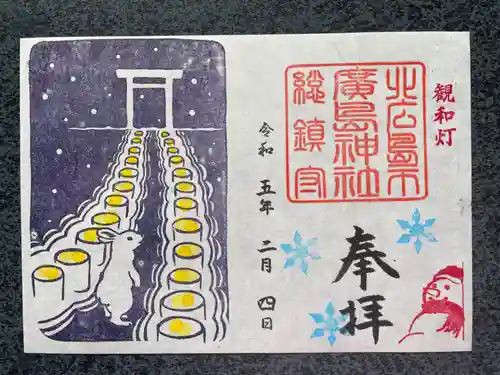 観和灯
北広島市
廣島神社
総鎮守
奉拝
令和 五年 二月 四日